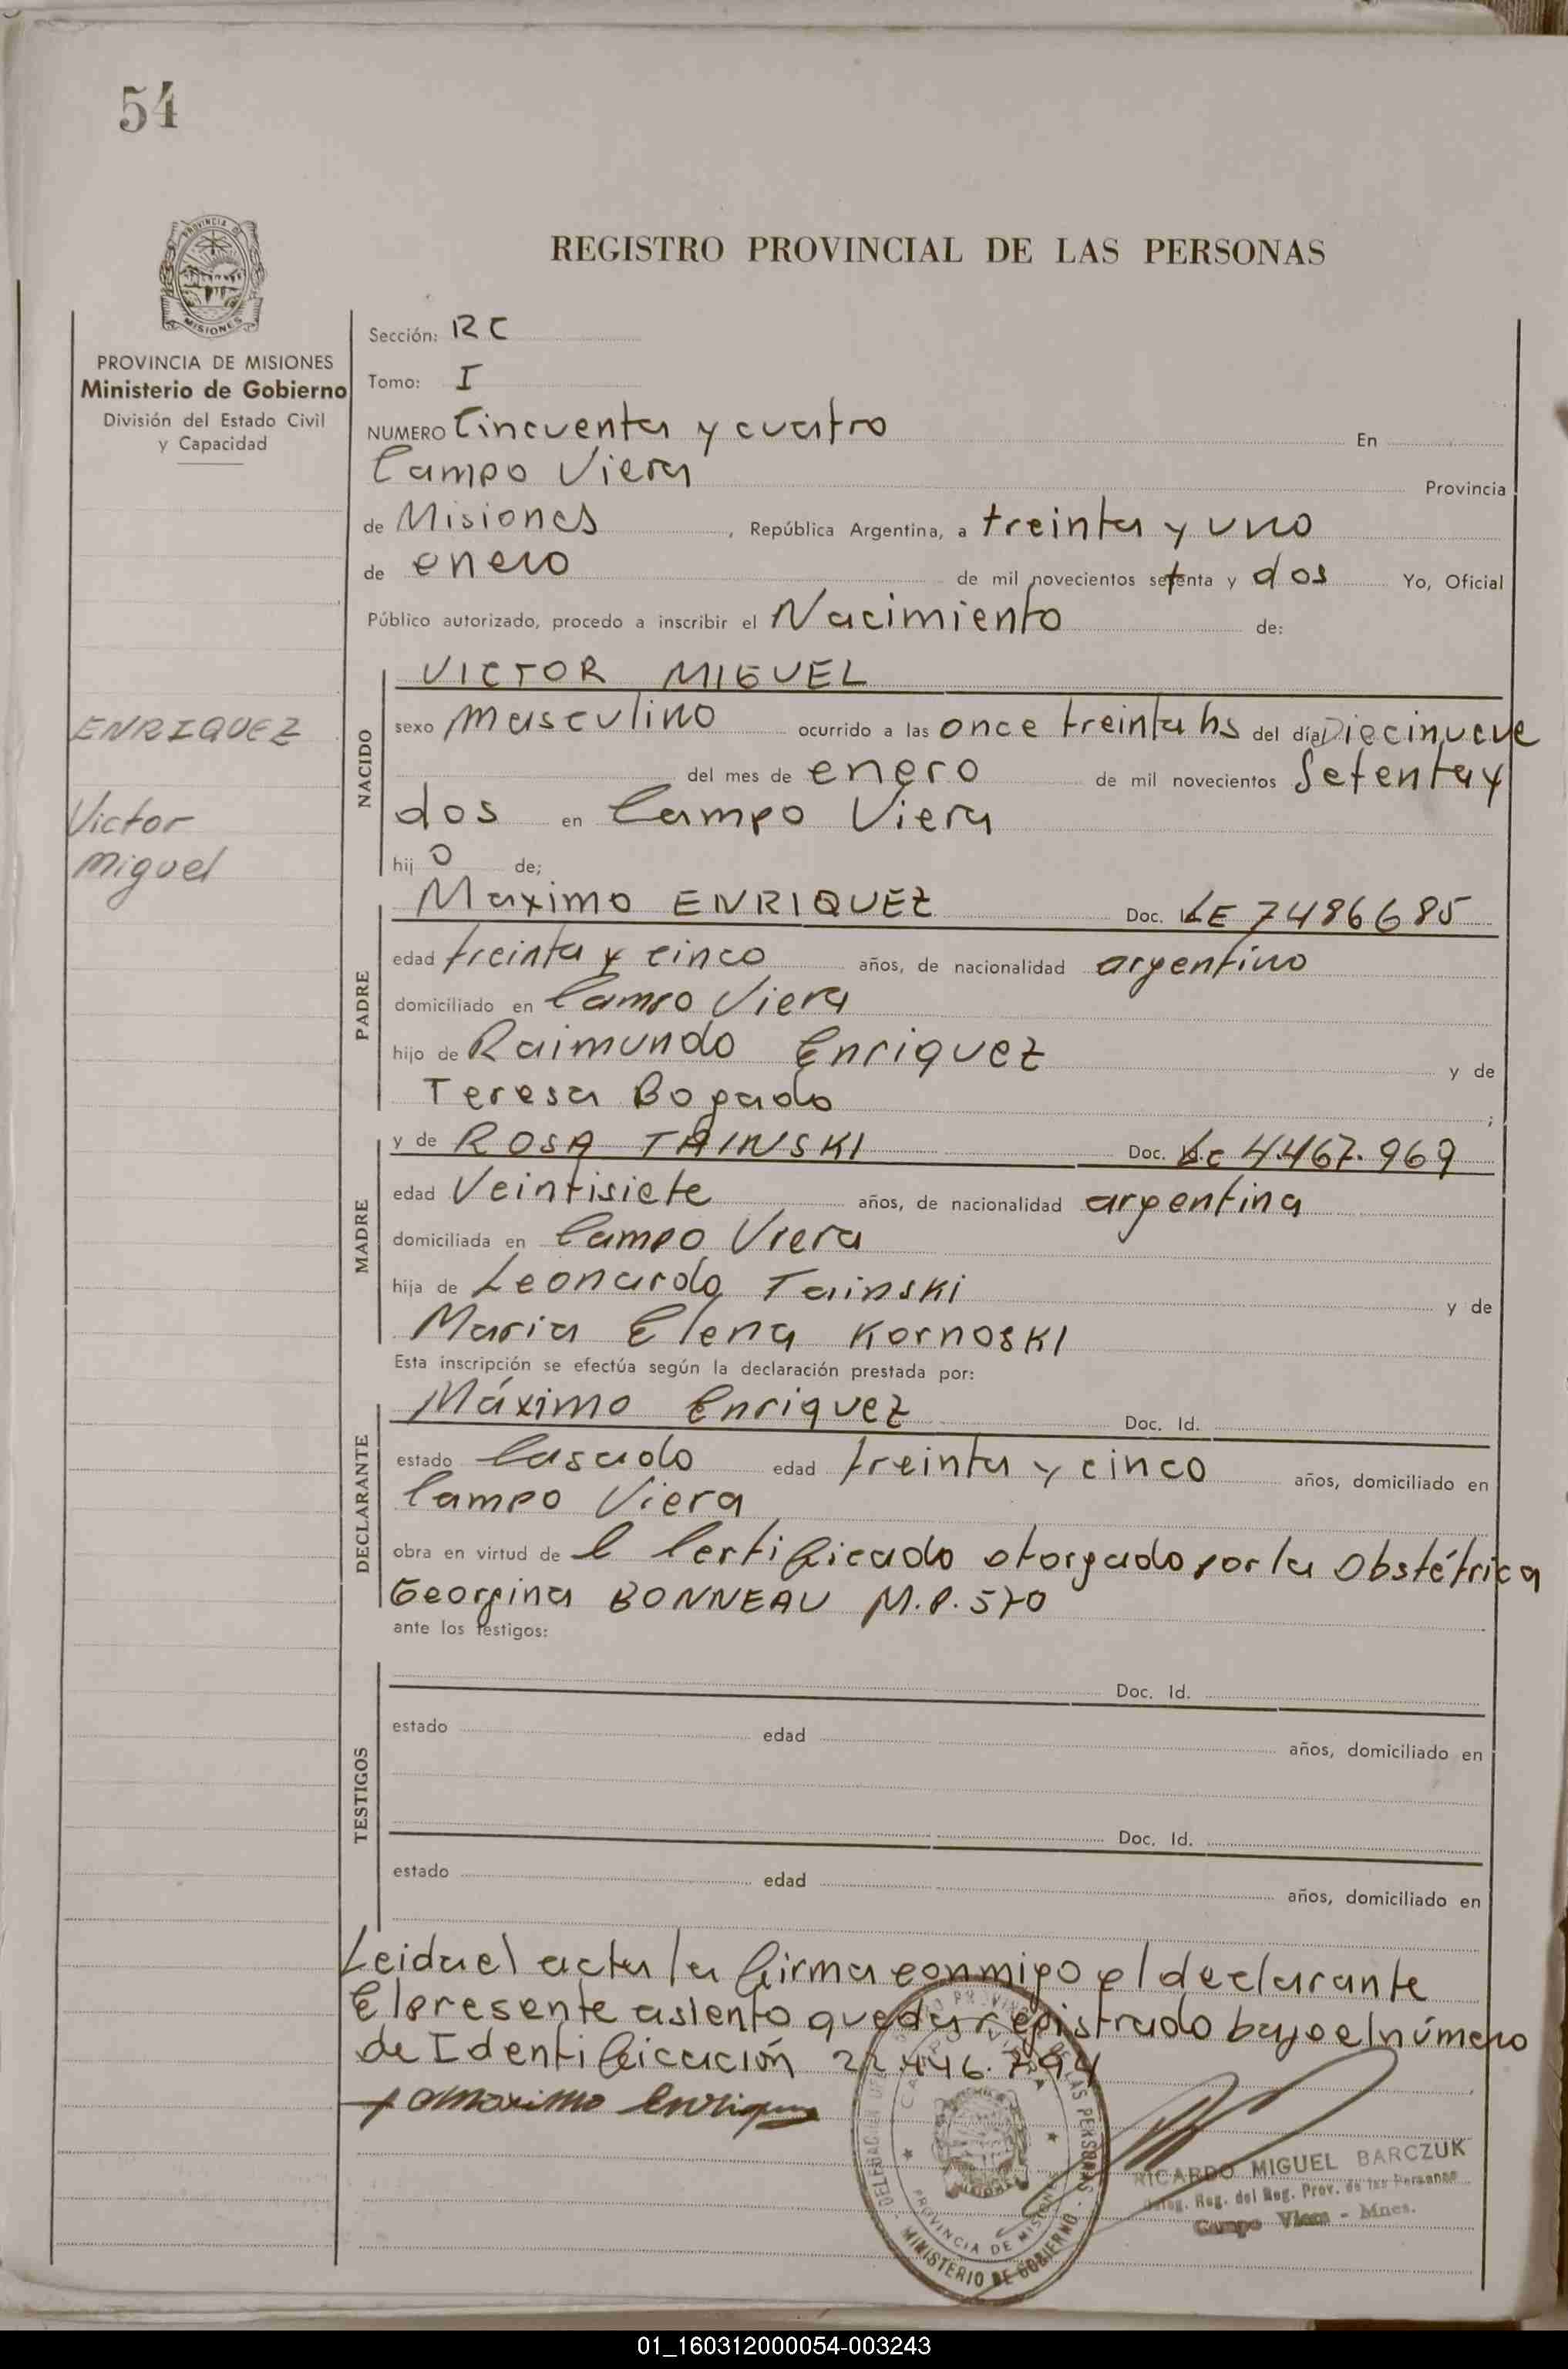 54
PROVINCIA DE MISIONES
Ministerio de Gobierno
División del Estado Civil
y Capacidad
ENRIQUEZ
Victor
Miguel
REGISTRO PROVINCIAL DE LAS PERSONAS
Sección: RC
Tomo: I
NUMERO Cincuenta y cuatro En
Campo Viera Provincia
de Misiones, República Argentina, a treinta y uno
de enero de mil novecientos setenta y dos Yo, Oficial
Público autorizado, procedo a inscribir el Nacimiento de:
NACIDO
VICTOR MIGUEL
sexo masculino ocurrido a las once treinta hs del día Diecinueve
del mes de enero de mil novecientos Setenta y
dos en Campo Viera
hij o de;
PADRE
Maximo ENRIQUEZ Doc. LE 7486685
edad treinta y cinco años, de nacionalidad argentino
domiciliado en Campo Viera
hijo de Raimundo Enriquez y de
Teresa Bogado ;
MADRE
y de ROSA TAINSKI Doc. Lc 4.467.969
edad Veintisiete años, de nacionalidad argentina
domiciliada en Campo Viera
hija de Leonardo Tainski y de
Maria Elena KornosKI
Esta inscripción se efectúa según la declaración prestada por:
DECLARANTE
Máximo Enriquez Doc. Id.
estado Casado edad treinta y cinco años, domiciliado en
Campo Viera
obra en virtud de l Certificado otorgado por la Obstétrica
Georgina BONNEAU M.P. 570
ante los testigos:
TESTIGOS
Doc. Id.
estado edad años, domiciliado en
Doc. Id.
estado edad años, domiciliado en
Leida el acta la firma conmigo el declarante
El presente asiento queda registrado bajo el número
de Identificación 22.446.794
Maximo Enriquez
CAMPO VIERA
PROVINCIA DE MISIONES
MINISTERIO DE GOBIERNO
RICARDO MIGUEL BARCZUK
Deleg. Reg. del Reg. Prov. de las Personas
Campo Viera - Mnes.
01_160312000054-003243